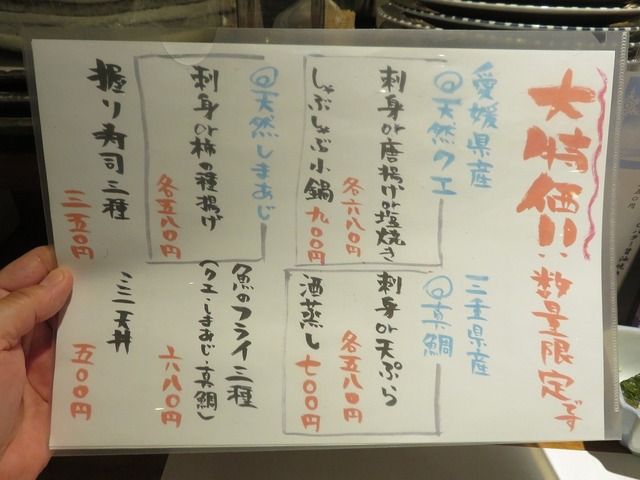 大特価!! 数量限定です
愛媛県産
◎天然クエ
刺身or唐揚げor塩焼き
各六八〇円
しゃぶしゃぶ小鍋 九〇〇円
三重県産
◎真鯛
刺身or天ぷら
各五八〇円
酒蒸し 七〇〇円
◎天然しまあじ
刺身or柿の種揚げ
各五八〇円
魚のフライ三種
(クエ・しまあじ・真鯛)
六八〇円
握り寿司三種
三五〇円
ミニ天丼
五〇〇円